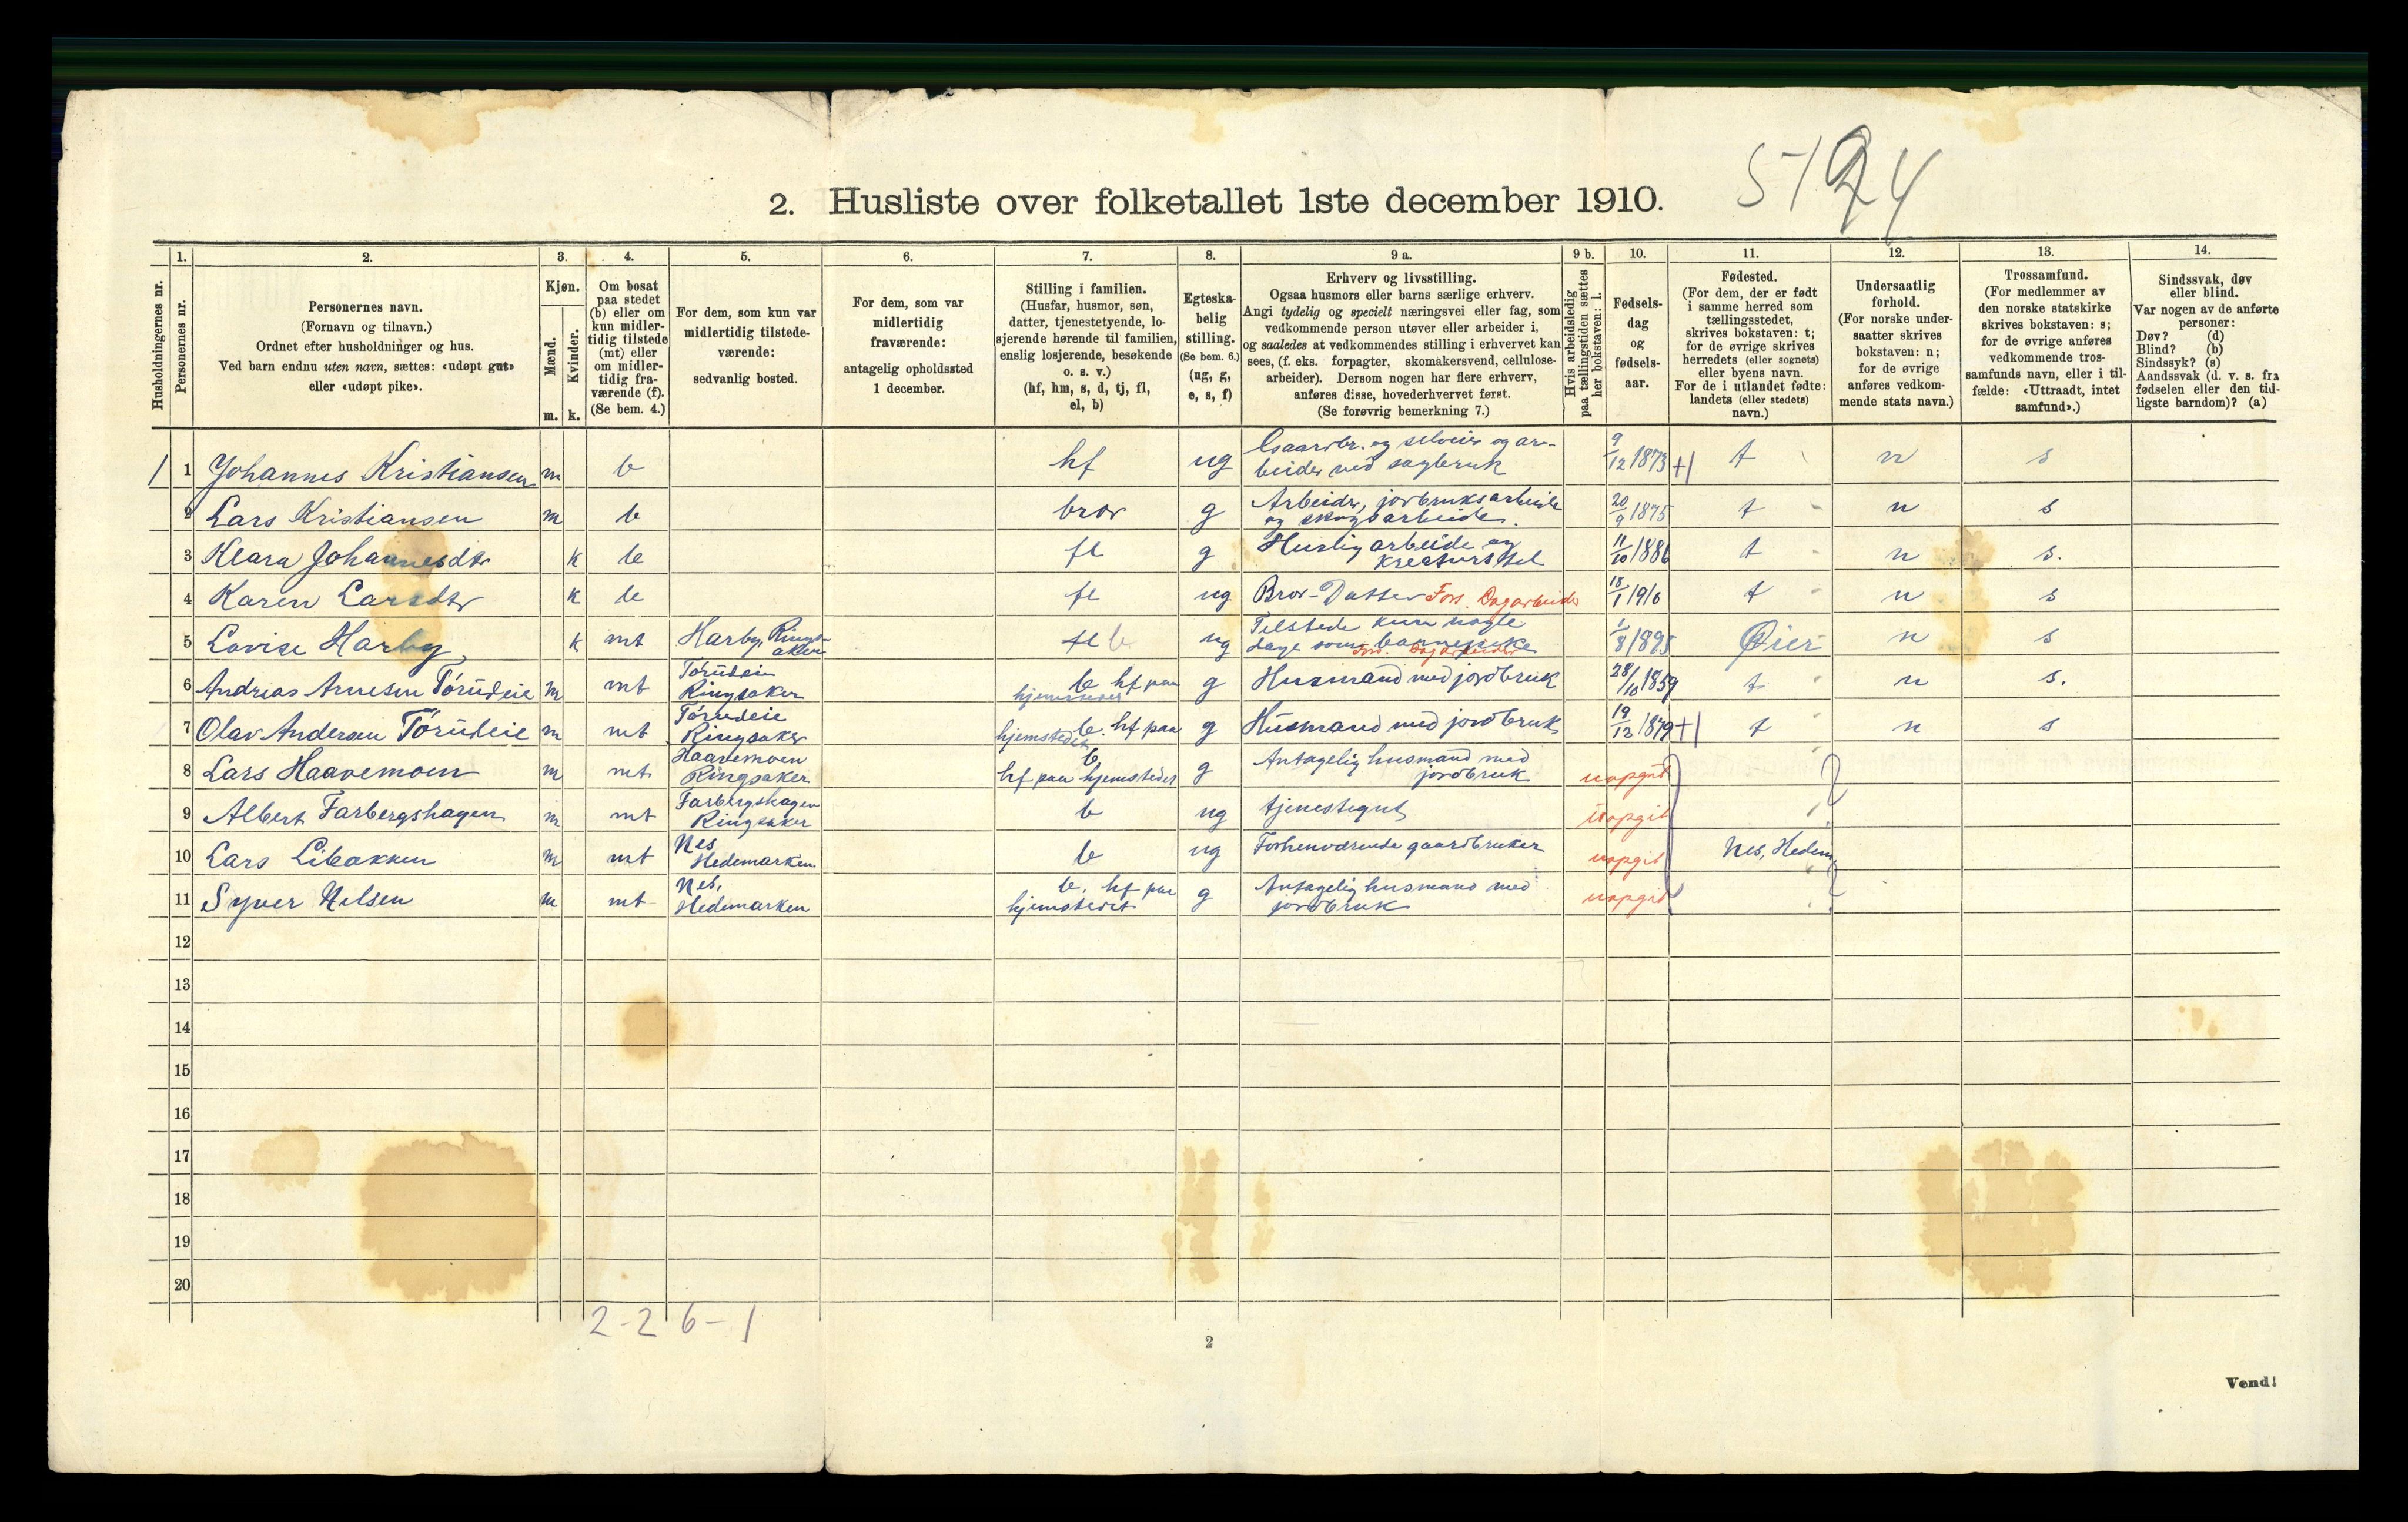 5-124
2. Husliste over folketallet 1ste december 1910.
Husholdningernes nr.
1.
Personernes nr.
2.
Personernes navn.
(Fornavn og tilnavn.)
Ordnet efter husholdninger og hus.
Ved barn endnu uten navn, sættes: «udøpt gut»
eller «udøpt pike».
3.
Kjøn.
Mænd.
Kvinder.
m. k.
4.
Om bosat
paa stedet
(b) eller om
kun midler-
tidig tilstede
(mt) eller
om midler-
tidig fra-
værende (f).
(Se bem. 4.)
5.
For dem, som kun var
midlertidig tilstede-
værende:
sedvanlig bosted.
6.
For dem, som var
midlertidig
fraværende:
antagelig opholdssted
1 december.
7.
Stilling i familien.
(Husfar, husmor, søn,
datter, tjenestetyende, lo-
sjerende hørende til familien,
enslig losjerende, besøkende
o. s. v.)
(hf, hm, s, d, tj, fl,
el, b)
8.
Egteska-
belig
stilling.
(Se bem. 6.)
(ug, g,
e, s, f)
9 a.
Erhverv og livsstilling.
Ogsaa husmors eller barns særlige erhverv.
Angi tydelig og specielt næringsvei eller fag, som
vedkommende person utøver eller arbeider i,
og saaledes at vedkommendes stilling i erhvervet kan
sees, (f. eks. forpagter, skomakersvend, cellulose-
arbeider). Dersom nogen har flere erhverv,
anføres disse, hovederhvervet først.
(Se forøvrig bemerkning 7.)
9 b.
Hvis arbeidsledig
paa tællingstiden sættes
her bokstaven: l.
10.
Fødsels-
dag
og
fødsels-
aar.
11.
Fødested.
(For dem, der er født
i samme herred som
tællingsstedet,
skrives bokstaven: t;
for de øvrige skrives
herredets (eller sognets)
eller byens navn.
For de i utlandet fødte:
landets (eller stedets)
navn.)
12.
Undersaatlig
forhold.
(For norske under-
saatter skrives
bokstaven: n;
for de øvrige
anføres vedkom-
mende stats navn.)
13.
Trossamfund.
(For medlemmer av
den norske statskirke
skrives bokstaven: s;
for de øvrige anføres
vedkommende tros-
samfunds navn, eller i til-
fælde: «Uttraadt, intet
samfund».)
14.
Sindssvak, døv
eller blind.
Var nogen av de anførte
personer:
Døv? (d)
Blind? (b)
Sindssyk? (s)
Aandssvak (d. v. s. fra
fødselen eller den tid-
ligste barndom)? (a)
1 1 Johannes Kristiansen m b hf ug Gaardbr. og selveier og ar-
beider ved sagbruk 9/12 1873 +1 t n s
2 Lars Kristiansen m b bror g Arbeider, jordbruksarbeide
og skogsarbeide. 20/9 1875 t n s
3 Klara Johannesdtr k b fl g Huslig arbeide og
kreaturstel 11/10 1886 t n s.
4 Karen Larsdtr k b fl ug Bror-Datter Fors. Dagarbeider 18/1 1910 t n s
5 Lovise Harby k mt Harby, Rings-
aker fl b ug Tilstede kun nogle
dage som barnepike
Fors. Dagarbeider 1/8 1895 Øier n s
6 Andreas Arnesen Tórúdeie m mt Tórúdeie
Ringsaker b hf paa
hjemstedet g Husmand med jordbruk 28/10 1859 t n s.
7 Olav Andersen Tórúdeie m mt Tórúdeie
Ringsaker b. hf paa
hjemstedet g Husmand med jordbruk 19/12 1879 +1 t n s
8 Lars Haavemoen m mt Haavemoen
Ringsaker b
hf paa hjemstedet g Antagelig husmand med
jordbruk uopgit ?
9 Albert Farbergshagen m mt Farbergshagen
Ringsaker b ug tjenestegut uopgit
10 Lars Libakken m mt Nes
Hedemarken b ug Forhenværende gaardbruker uopgit Nes, Hedem.
11 Syver Nilsen m mt Nes,
Hedemarken b. hf paa
hjemstedet g Antagelig husmand med
jordbruk uopgit ?
12
13
14
15
16
17
18
19
20
2-2 6-1
2
Vend!